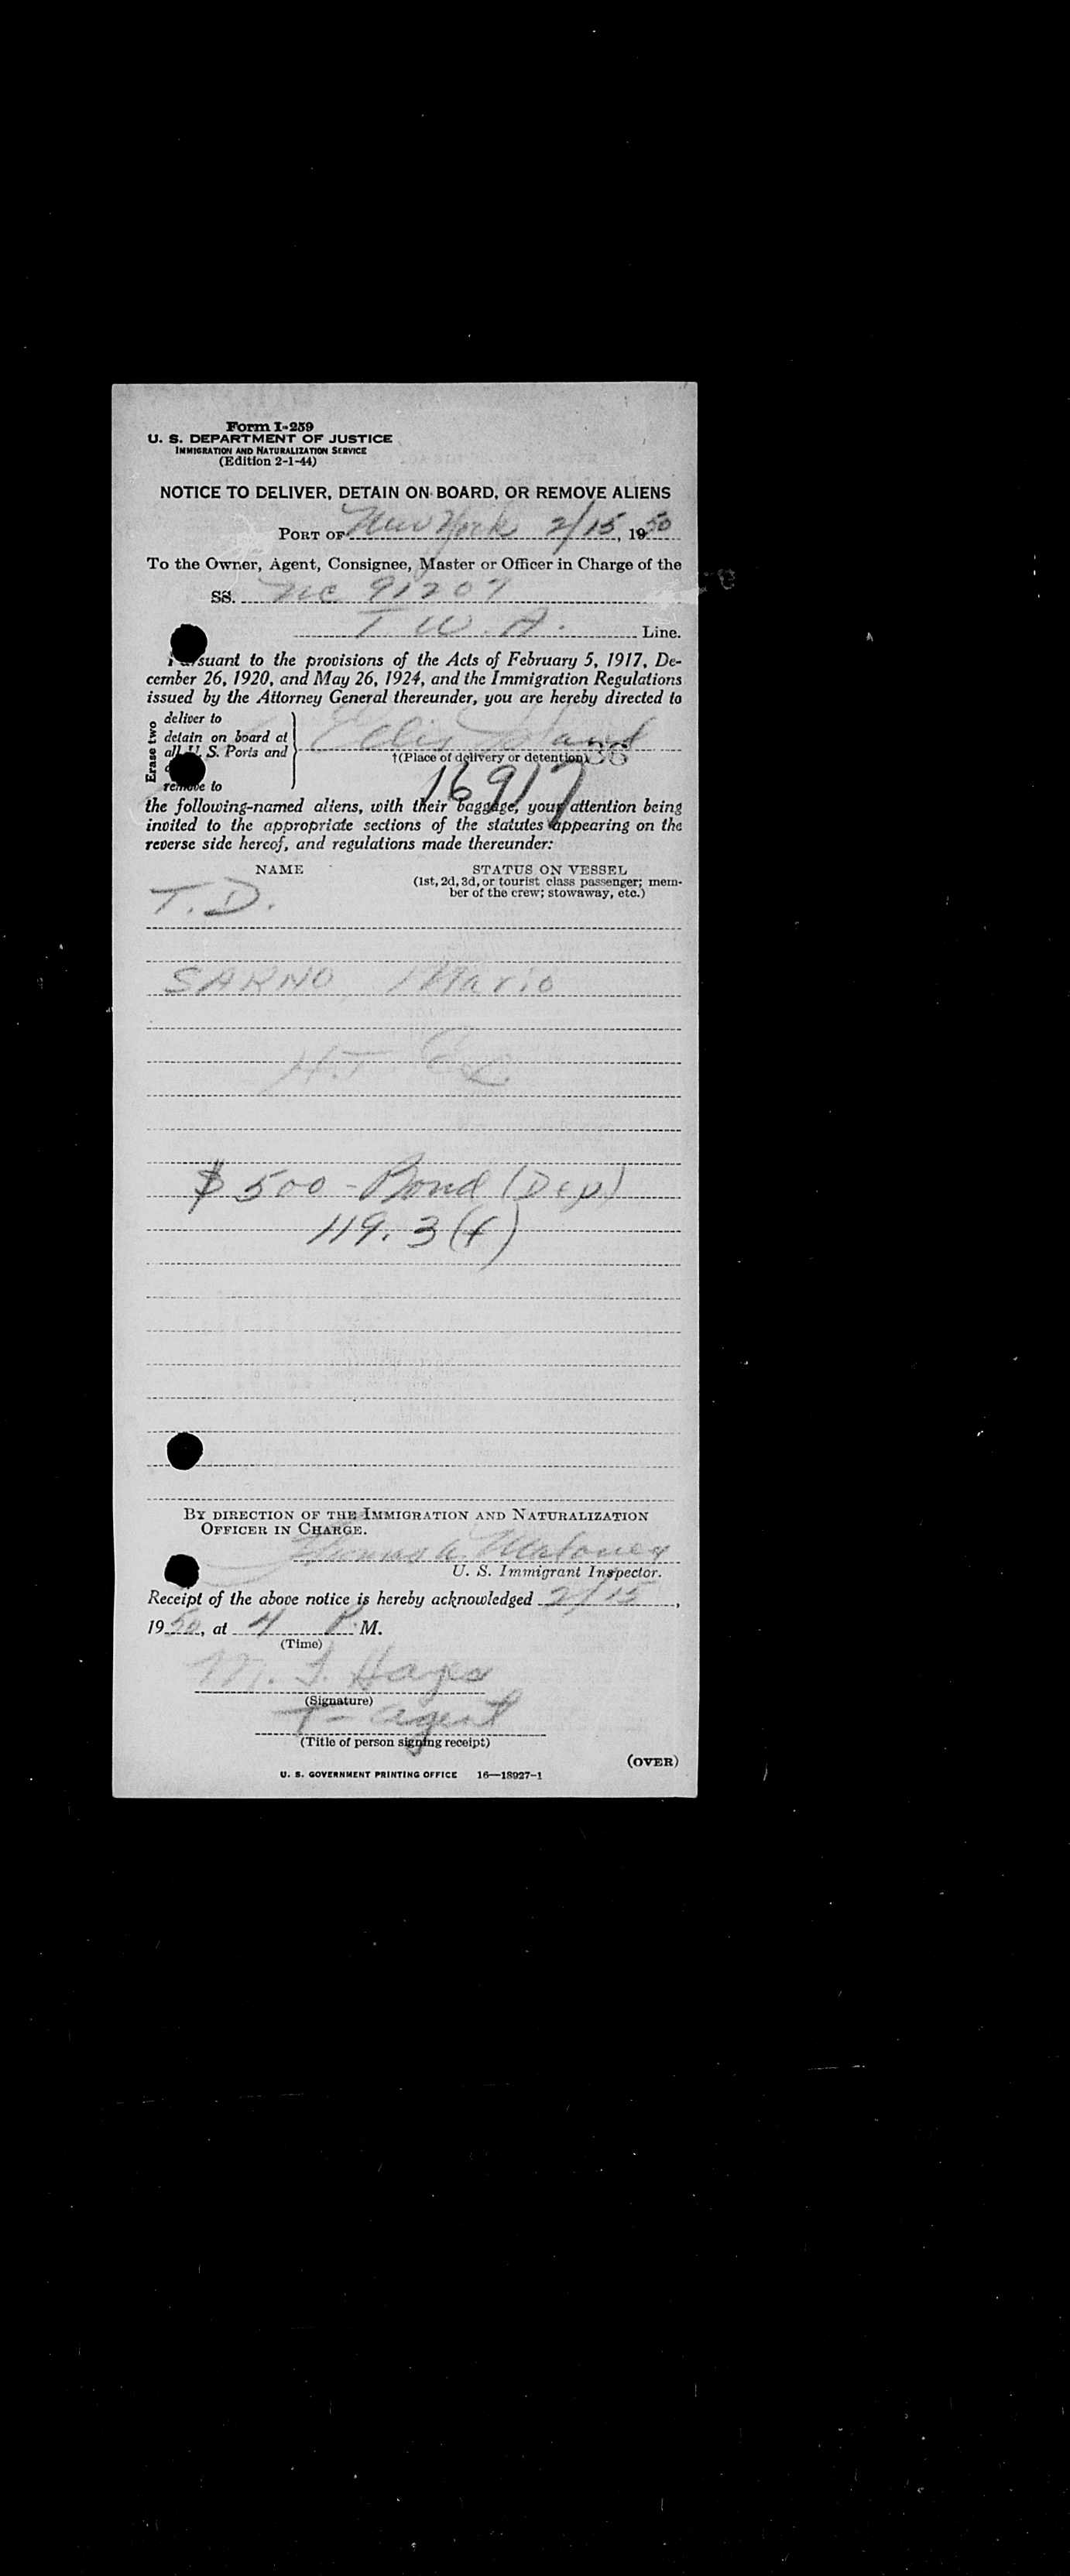 Form I-259
U. S. DEPARTMENT OF JUSTICE
IMMIGRATION AND NATURALIZATION SERVICE
(Edition 2-1-44)
NOTICE TO DELIVER, DETAIN ON BOARD, OR REMOVE ALIENS
PORT OF New York 2/15, 1950
To the Owner, Agent, Consignee, Master or Officer in Charge of the
SS. NC 91207
T. W. A. Line.
Pursuant to the provisions of the Acts of February 5, 1917, De-
cember 26, 1920, and May 26, 1924, and the Immigration Regulations
issued by the Attorney General thereunder, you are hereby directed to
Erase two
deliver to
detain on board at
all U. S. Ports and
remove to
Ellis Island
†(Place of delivery or detention) 36
16917
the following-named aliens, with their baggage, your attention being
invited to the appropriate sections of the statutes appearing on the
reverse side hereof, and regulations made thereunder:
NAME
STATUS ON VESSEL
(1st, 2d, 3d, or tourist class passenger; mem-
ber of the crew; stowaway, etc.)
T. D.
SARNO, Mario
$500 - Bond (Dep)
119. 3 (f)
BY DIRECTION OF THE IMMIGRATION AND NATURALIZATION
OFFICER IN CHARGE.
Thomas A. Maloney
U. S. Immigrant Inspector.
Receipt of the above notice is hereby acknowledged 2/15,
1950, at 4 P. M.
(Time)
M. J. Hayes
(Signature)
T- agent
(Title of person signing receipt)
(OVER)
U. S. GOVERNMENT PRINTING OFFICE 16—18927-1